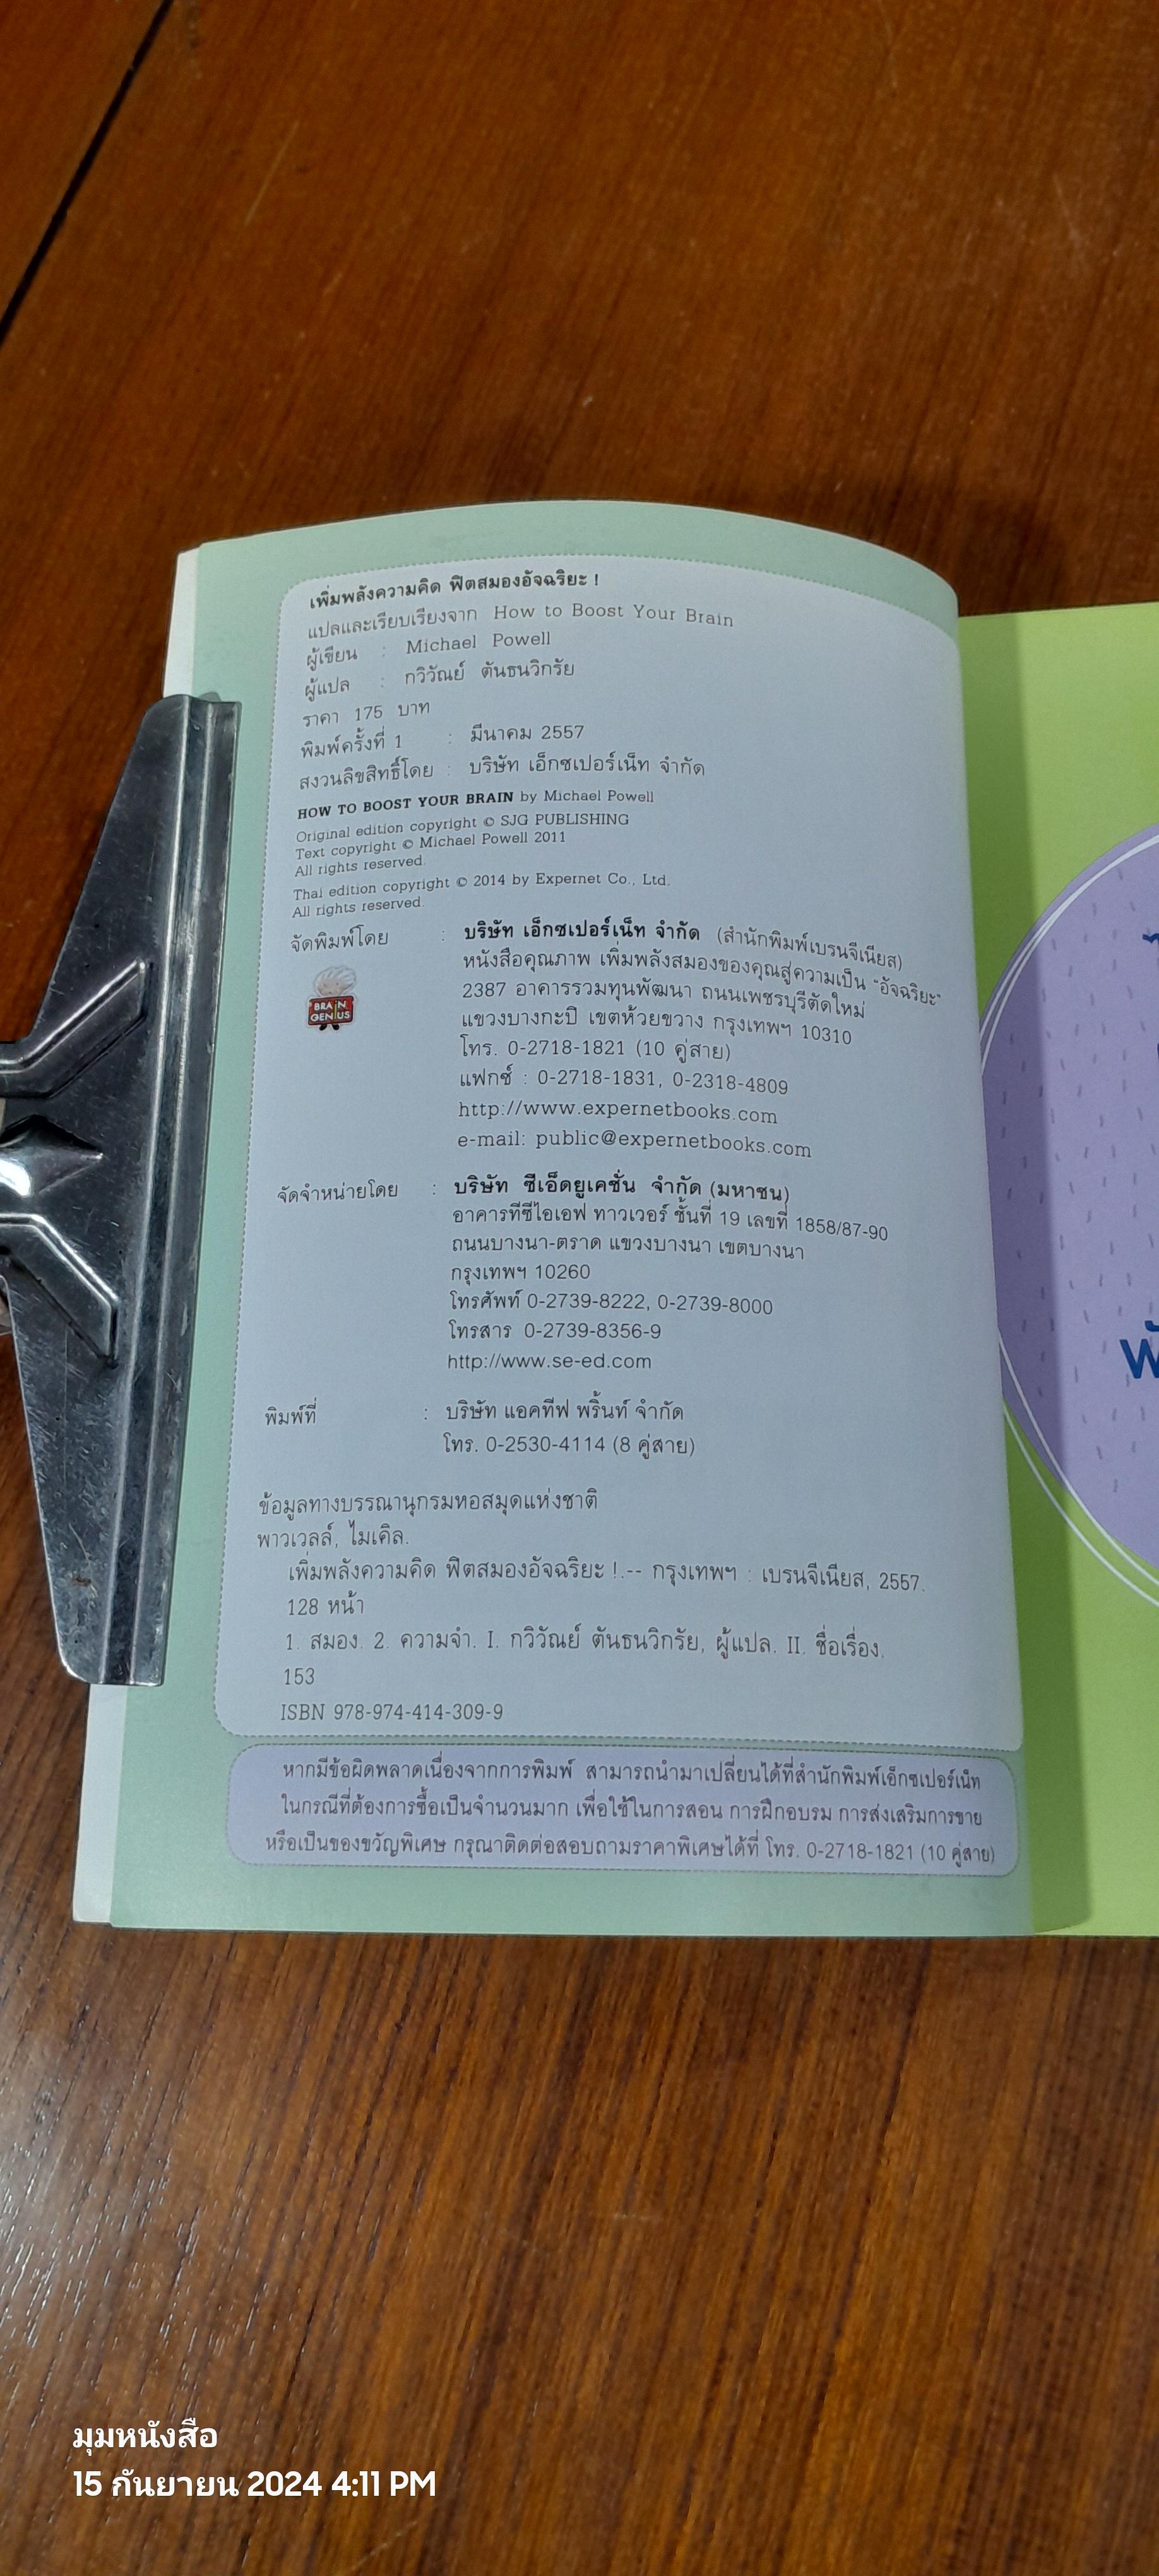 เพิ่มพลังความคิด ฟิตสมองอัจฉริยะ !
แปลและเรียบเรียงจาก How to Boost Your Brain
ผู้เขียน : Michael Powell
ผู้แปล : กวิวัณย์ ตันธนวิกรัย
ราคา 175 บาท
พิมพ์ครั้งที่ 1 : มีนาคม 2557
สงวนลิขสิทธิ์โดย : บริษัท เอ็กซเปอร์เน็ท จำกัด
HOW TO BOOST YOUR BRAIN by Michael Powell
Original edition copyright © SJG PUBLISHING
Text copyright © Michael Powell 2011
All rights reserved.
Thai edition copyright © 2014 by Expernet Co., Ltd.
All rights reserved.
จัดพิมพ์โดย : บริษัท เอ็กซเปอร์เน็ท จำกัด (สำนักพิมพ์เบรนจีเนียส)
หนังสือคุณภาพ เพิ่มพลังสมองของคุณสู่ความเป็น "อัจฉริยะ"
BRAIN
GENIUS
2387 อาคารรวมทุนพัฒนา ถนนเพชรบุรีตัดใหม่
แขวงบางกะปิ เขตห้วยขวาง กรุงเทพฯ 10310
โทร. 0-2718-1821 (10 คู่สาย)
แฟกซ์ : 0-2718-1831, 0-2318-4809
http://www.expernetbooks.com
e-mail: public@expernetbooks.com
จัดจำหน่ายโดย : บริษัท ซีเอ็ดยูเคชั่น จำกัด (มหาชน)
อาคารทีซีไอเอฟ ทาวเวอร์ ชั้นที่ 19 เลขที่ 1858/87-90
ถนนบางนา-ตราด แขวงบางนา เขตบางนา
กรุงเทพฯ 10260
โทรศัพท์ 0-2739-8222, 0-2739-8000
โทรสาร 0-2739-8356-9
http://www.se-ed.com
พิมพ์ที่ : บริษัท แอคทีฟ พริ้นท์ จำกัด
โทร. 0-2530-4114 (8 คู่สาย)
ข้อมูลทางบรรณานุกรมหอสมุดแห่งชาติ
พาวเวลล์, ไมเคิล.
เพิ่มพลังความคิด ฟิตสมองอัจฉริยะ !.-- กรุงเทพฯ : เบรนจีเนียส, 2557.
128 หน้า
1. สมอง. 2. ความจำ. I. กวิวัณย์ ตันธนวิกรัย, ผู้แปล. II. ชื่อเรื่อง.
153
ISBN 978-974-414-309-9
หากมีข้อผิดพลาดเนื่องจากการพิมพ์ สามารถนำมาเปลี่ยนได้ที่สำนักพิมพ์เอ็กซเปอร์เน็ท
ในกรณีที่ต้องการซื้อเป็นจำนวนมาก เพื่อใช้ในการสอน การฝึกอบรม การส่งเสริมการขาย
หรือเป็นของขวัญพิเศษ กรุณาติดต่อสอบถามราคาพิเศษได้ที่ โทร. 0-2718-1821 (10 คู่สาย)
มุมหนังสือ
15 กันยายน 2024 4:11 PM